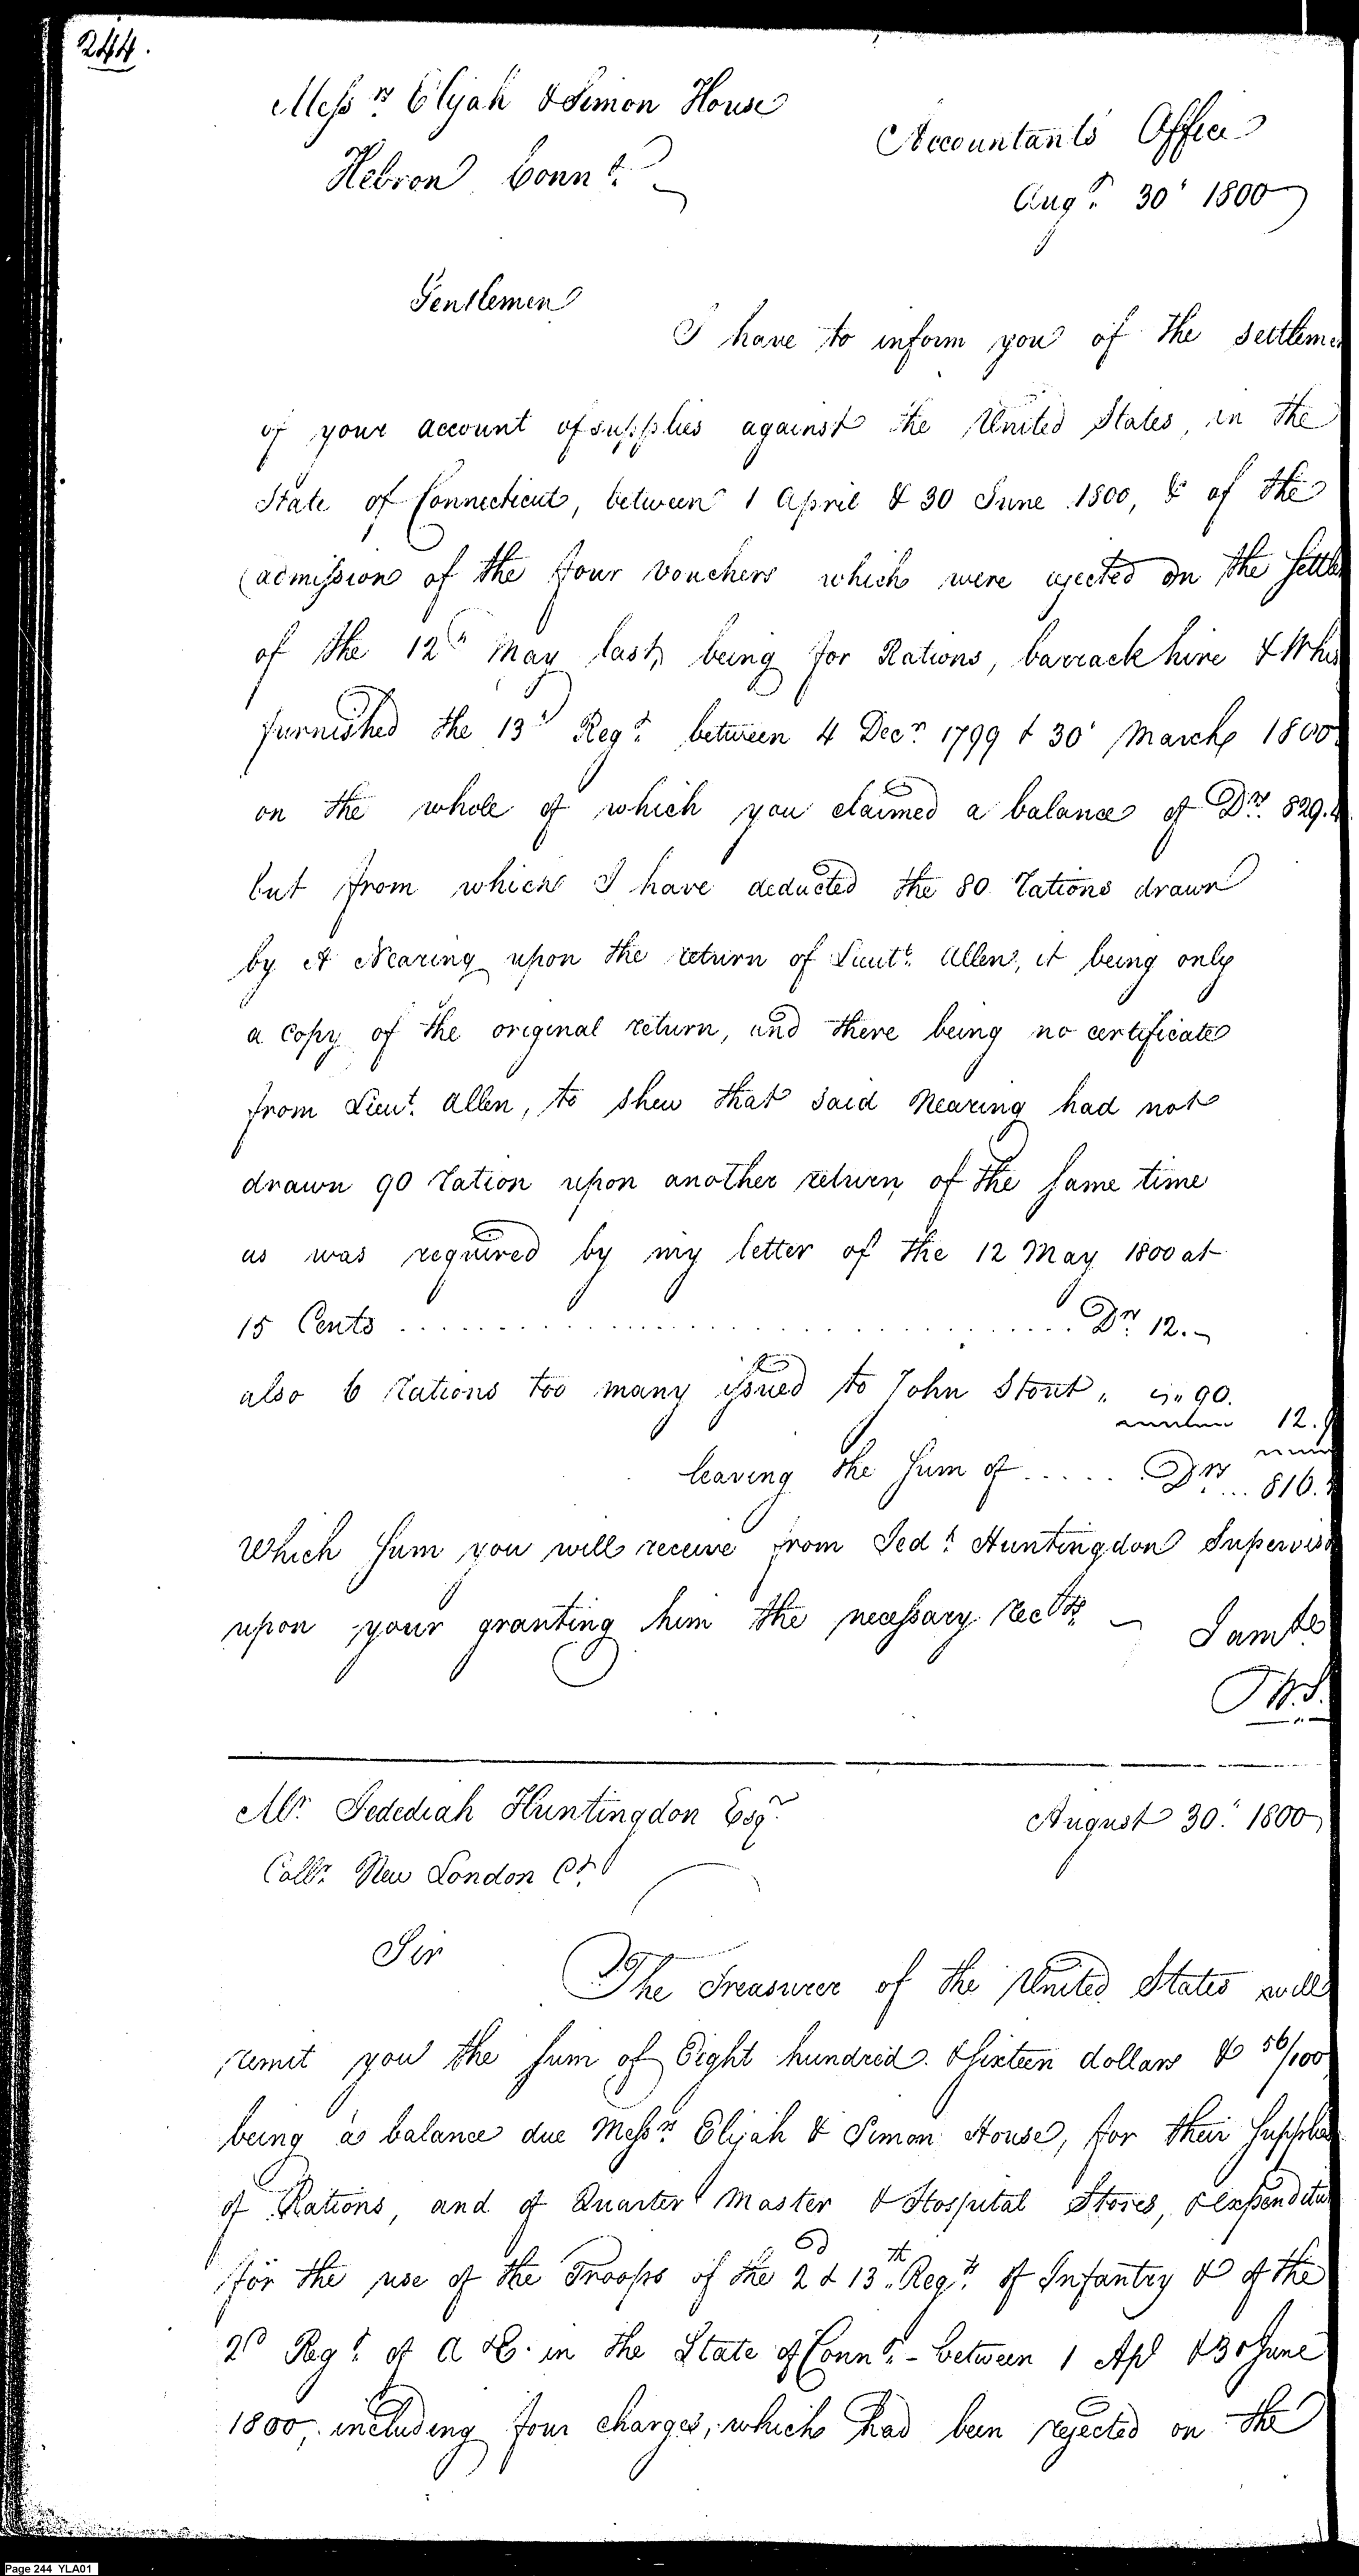 244.
Messrs Elijah & Simon House
Accountants Office
Hebron Connt.
Augt. 30' 1800
Gentlemen
I have to inform you of the settleme
of your account of supplies against the United States, in the
State of Connecticut, between 1 April & 30 June 1800, & of the
admission of the four vouchers which were ejected on the settle
of the 12th May last, being for Rations, barrack hire & Whis
furnished the 13th Regt. between 4 Decr. 1799 & 30' March 1800
on the whole of which you claimed a balance of Drs. 829.4
but from which I have deducted the 80 rations drawn
by A Nearing upon the return of Lieutt. Allen, it being only
a copy of the original return, and there being no certificate
from Lieut. Allen, to shew that said Nearing had not
drawn 90 ration upon another return of the same time
as was required by my letter of the 12 May 1800 at
15 Cents ........ Drs. 12.-
also 6 rations too many issued to John Stout " -"90.
12.9
leaving the sum of ..... Drs ... 816.
Which sum you will receive from Jedh. Huntingdon Superviso
upon your granting him the necessary rects. — I am &c
W.S.
Mr. Jedediah Huntingdon Esqr.
August 30th 1800
Collr. New London Ct.
Sir
The Treasurer of the United States will
remit you the sum of Eight hundred & sixteen dollars & 56/100
being a balance due Messrs. Elijah & Simon House, for their supplies
of Rations, and of Quarter Master & Hospital Stores, & expenditu
for the use of the Troops of the 2d & 13th Regts. of Infantry & of the
2d Regt. of A & E. in the State of Connt. - between 1 Apl & 30 June
1800, including four charges, which had been rejected on the
Page 244 YLA01